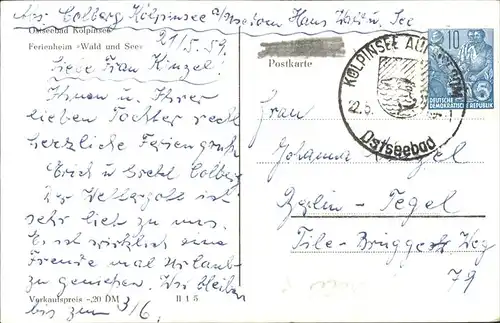 Abs. Colberg Kölpinsee a/Usedom Haus Wald u. See
Ostseebad Kölpinsee
Ferienheim »Wald und See«
21/5. 59.
Liebe Frau Kinzel!
Ihnen u. Ihrer
lieben Tochter recht
herzliche Feriengrüße
Erich u Gretel Colberg
Der Wettergott ist
sehr lieb zu uns.
Es ist wirklich eine
Freude mal Urlaub
zu genießen. Wir bleiben
bis zum 3/6.
Verkaufspreis -,20 DM II 1 5
Postkarte
KÖLPINSEE AUF USEDOM
22.5.
Ostseebad
10
DEUTSCHE
DEMOKRATISCHE REPUBLIK
Frau
Johanna Kinzel
Berlin - Tegel
Tile-Brügge Weg
79